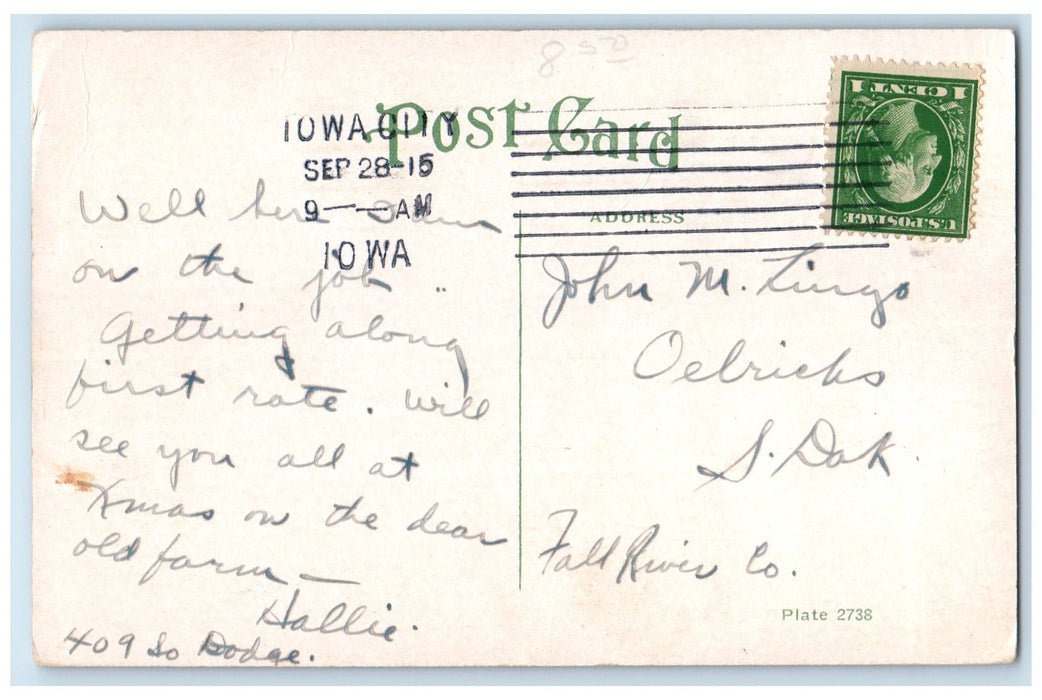 8 50
Post Card
IOWA CITY
SEP 28-15
9 — AM
IOWA
1 CENT 1
U.S. POSTAGE
Well here I am
on the job ..
Getting along
first rate. Will
see you all at
Xmas on the dear
old farm —
Hallie.
409 So Dodge.
ADDRESS
John M. Lingo
Oelrichs
S. Dak.
Fall River Co.
Plate 2738